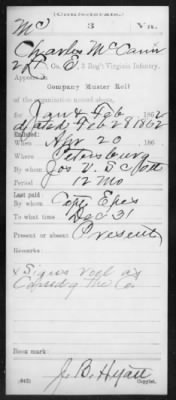 (Confederate.)
Mc 3 Va.
Charles McCann
2d Lt, Co. E, 3 Reg't Virginia Infantry.
Appears on
Company Muster Roll
of the organization named above,
for Jan & Feb, 1862
dated Feb 28 1862
Enlisted:
When Apr 20, 186
Where Petersburg
By whom Jos V. Scott
Period 12 Mo
Last paid:
By whom Capt Epes
To what time Dec 31, 186
Present or absent Present
Remarks:
& Signs roll as
Comdg the Co.
Book mark:
J. B. Hyatt
(642) Copyist.